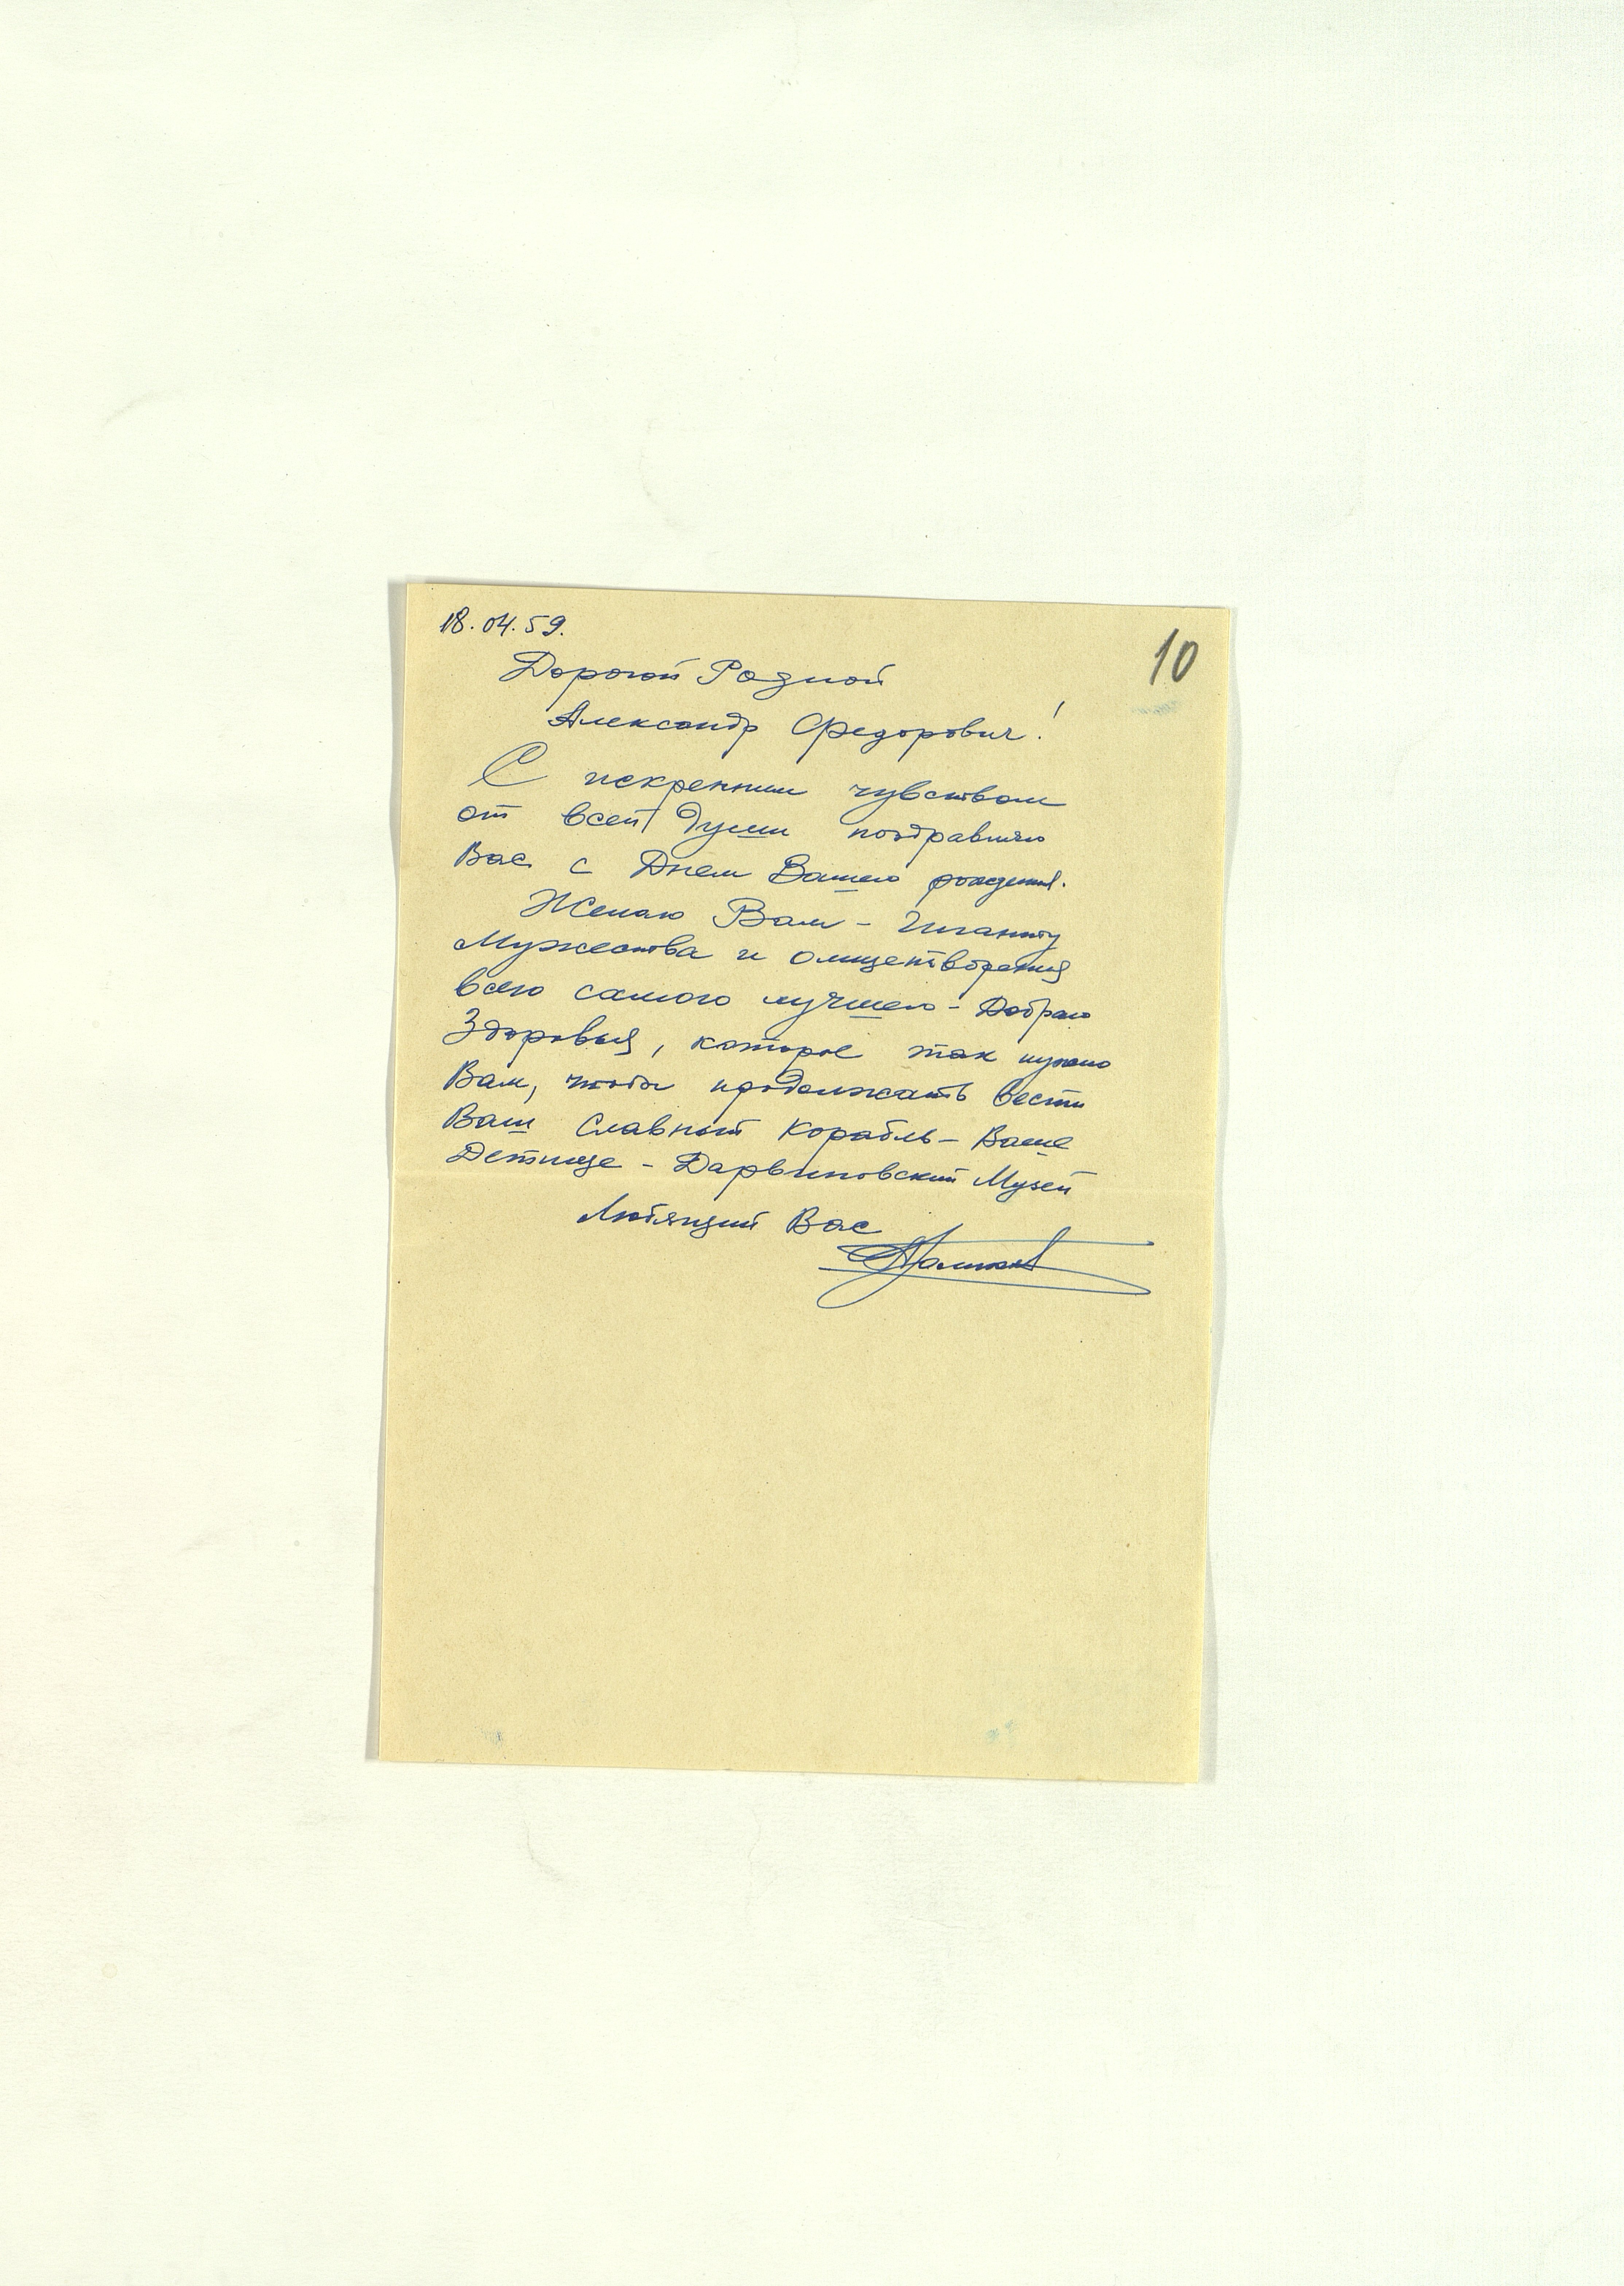 18.04.59.
10
Дорогой Родной
Александр Федорович!
С искренним чувством
от всей души поздравляю
Вас с Днем Вашего рождения.
Желаю Вам - Гиганту
Мужества и олицетворения
всего самого лучшего - Доброго
Здоровья, которое так нужно
Вам, чтобы продолжать вести
Ваш Славный Корабль - Ваше
Детище - Дарвиновский Музей
Любящий Вас